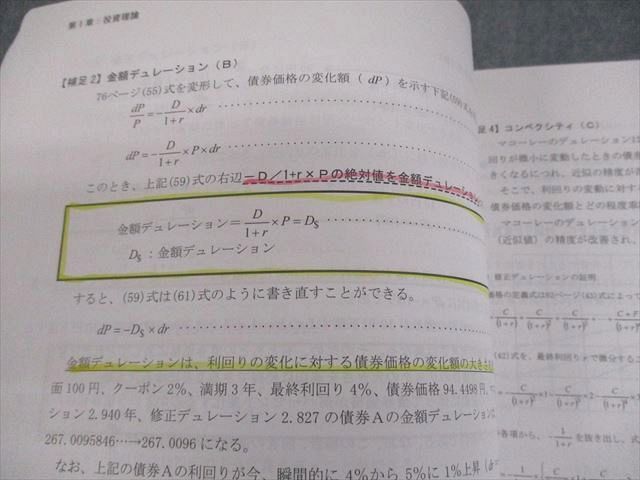 第1章：投資理論
【補足2】金額デュレーション（B）
76ページ(55)式を変形して、債券価格の変化額（dP）を示す下記(59)式
dP/P=-D/1+r×dr
dP=-D/1+r×P×dr
このとき、上記(59)式の右辺－D／1+r×Pの絶対値を金額デュレーション
金額デュレーション=D/1+r×P=D$
D$：金額デュレーション
すると、(59)式は(61)式のように書き直すことができる。
dP=-D$×dr
金額デュレーションは、利回りの変化に対する債券価格の変化額の大きさ
面100円、クーポン2％、満期3年、最終利回り4％、債券価格94.4498円、
ション2.940年、修正デュレーション2.827の債券Aの金額デュレーション
267.0095846…→267.0096になる。
なお、上記の債券Aの利回りが今、瞬間的に4％から5％に1％上昇
足4】コンベクシティ（C）
マコーレーのデュレーションは
回りが微小に変動したときの債
きくなるにつれ、近似の精度が
そこで、利回りの変動に対す
債券価格の変化額とどの程度
マコーレーのデュレーション
（近似値）の精度が改善され、
修正デュレーションの証明
価格の定義式は62ページ(43)式によって
C/(1+r)+C/(1+r)²+C/(1+r)³+ C+F
(62)式を、最終利回りrで微分する
各項から、-1/1+rを抜き出し、式